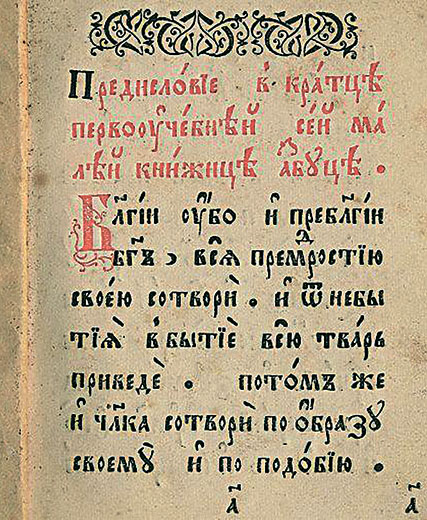 Предисло́вїе в кра́тцѣ
первоѹче́бнѣй се́й ма́
лѣй кни́жицѣ а́збуцѣ .
Бл҃гі́й ѹ҆́бо и҆ преблг҃і́й
бг҃ъ , всѧ̀ премⷣростїю
свое́ю сотворѝ . и҆ ѿ небы
тїѧ̀ в бытїѐ всю̀ тва́рь
приведѐ . пото́мъ же
и҆ чл҃ка сотворѝ по о҆́бразꙋ
своемꙋ̀ и҆ по подо́бїю .
а҃ а҃